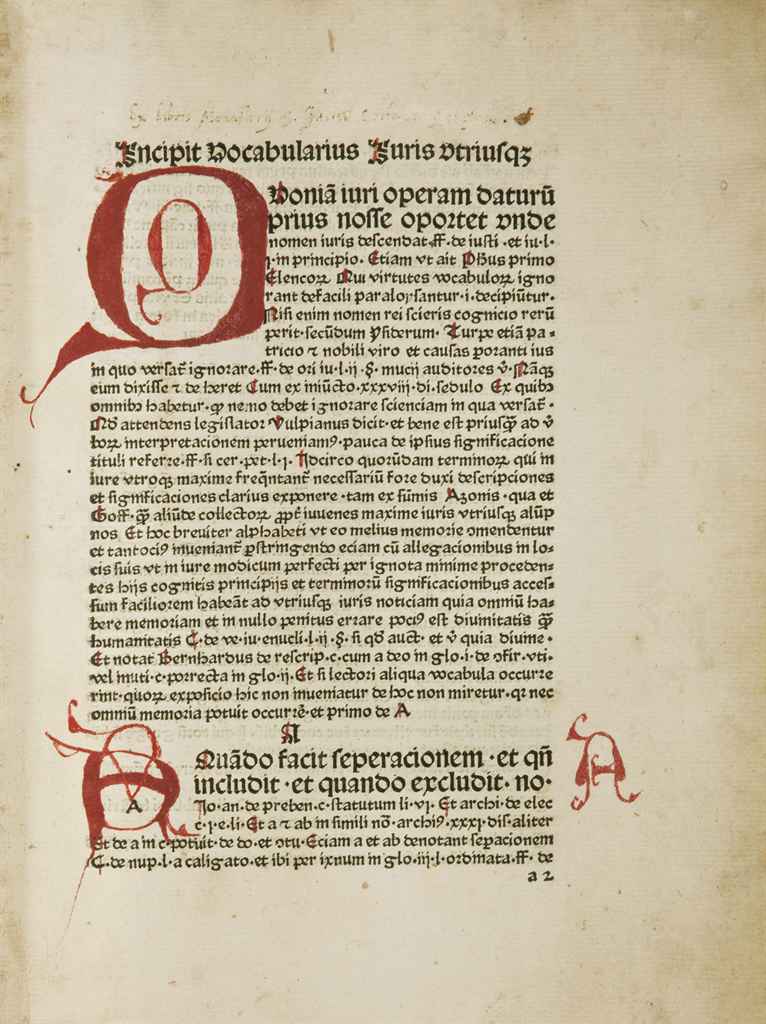 Ex libris
Incipit Vocabularius Iuris vtriusqꝫ
QVoniā iuri operam daturū
prius nosse oportet vnde
nomen iuris descendat ff· de iusti ·et iu·l·
i·in principio· Etiam vt ait Ph̄us primo
Elencoꝝ Qui virtutes vocabuloꝝ igno
rant defacili paraloysantur·i·decipiūtur·
Nisi enim nomen rei scieris cognicio rerū
perit·secūdum ysiderum· Turpe etiā pa-
tricio ⁊ nobili viro et causas poranti ius
in quo versat̄ ignorare·ff·de ori iu·l·ij ·§· mucij auditores v̄· Nāqꝫ
eium dixisse ⁊ de heret Cum ex iniūcto·xxxviij·di·sedulo Ex quibꝫ
omnibꝫ habetur·ꝙ nemo debet ignorare scienciam in qua versat̄·
Qđ attendens legislator Vulpianus dicit·et bene est priusqꝫ ad v̄
boꝝ interpretacionem perueniamꝰ·pauca de ipsius significacione
tituli referre·ff·si cer·pet·l·i· Idcirco quorūdam terminoꝝ qui in
iure vtroqꝫ maxime freq̄ntant̄ necessariū fore duxi descripciones
et significaciones clarius exponere ·tam ex sumis Azonis ·qua et
Goff·ꝙ̄ aliūde collectoꝝ ꝓpt̄ iuuenes maxime iuris vtriusqꝫ alūp
nos Et hoc breuiter alphabeti vt eo melius memorie ↄmendentur
et tantociꝰ inueniant̄ ꝑstringendo eciam cū allegacionibus in lo-
cis suis vt in iure modicum perfecti per ignota minime proceden-
tes hijs cognitis principijs et terminorū significacionibus acces-
sum faciliorem habeāt ad vtriusqꝫ iuris noticiam quia omniū ha-
bere memoriam et in nullo penitus errare pociꝰ est diuinitatis ꝙ̄
humanitatis C·de ve·iu·enucli·l·ij·§·si qđ auct̄·et v̄ quia diuine·
Et notat Bernhardus de rescrip·c·cum a deo in glo·i·de ↄfir·vti-
vel inuti·c·porrecta in glo·ij·Et si lectori aliqua vocabula occurre
rint·quoꝝ exposicio hic non inueniatur de hoc non miretur·qꝛ nec
omniū memoria potuit occurrē·et primo de A
A
A Quādo facit seperacionem ·et qn̄
includit ·et quando excludit· no·
Jo·an·de preben·c·statutum li·vi· Et archi·de elec
c·i·e·li·Et a ⁊ ab in simili nō·archiꝰ·xxxi·dis·aliter
Et de a in c·potuit·de do·et ↄtu·Eciam a et ab denotant sepacionem
C·de nup·l·a caligato·et ibi per ixnum in glo·iij·l·ordinata·ff·de
a 2
A